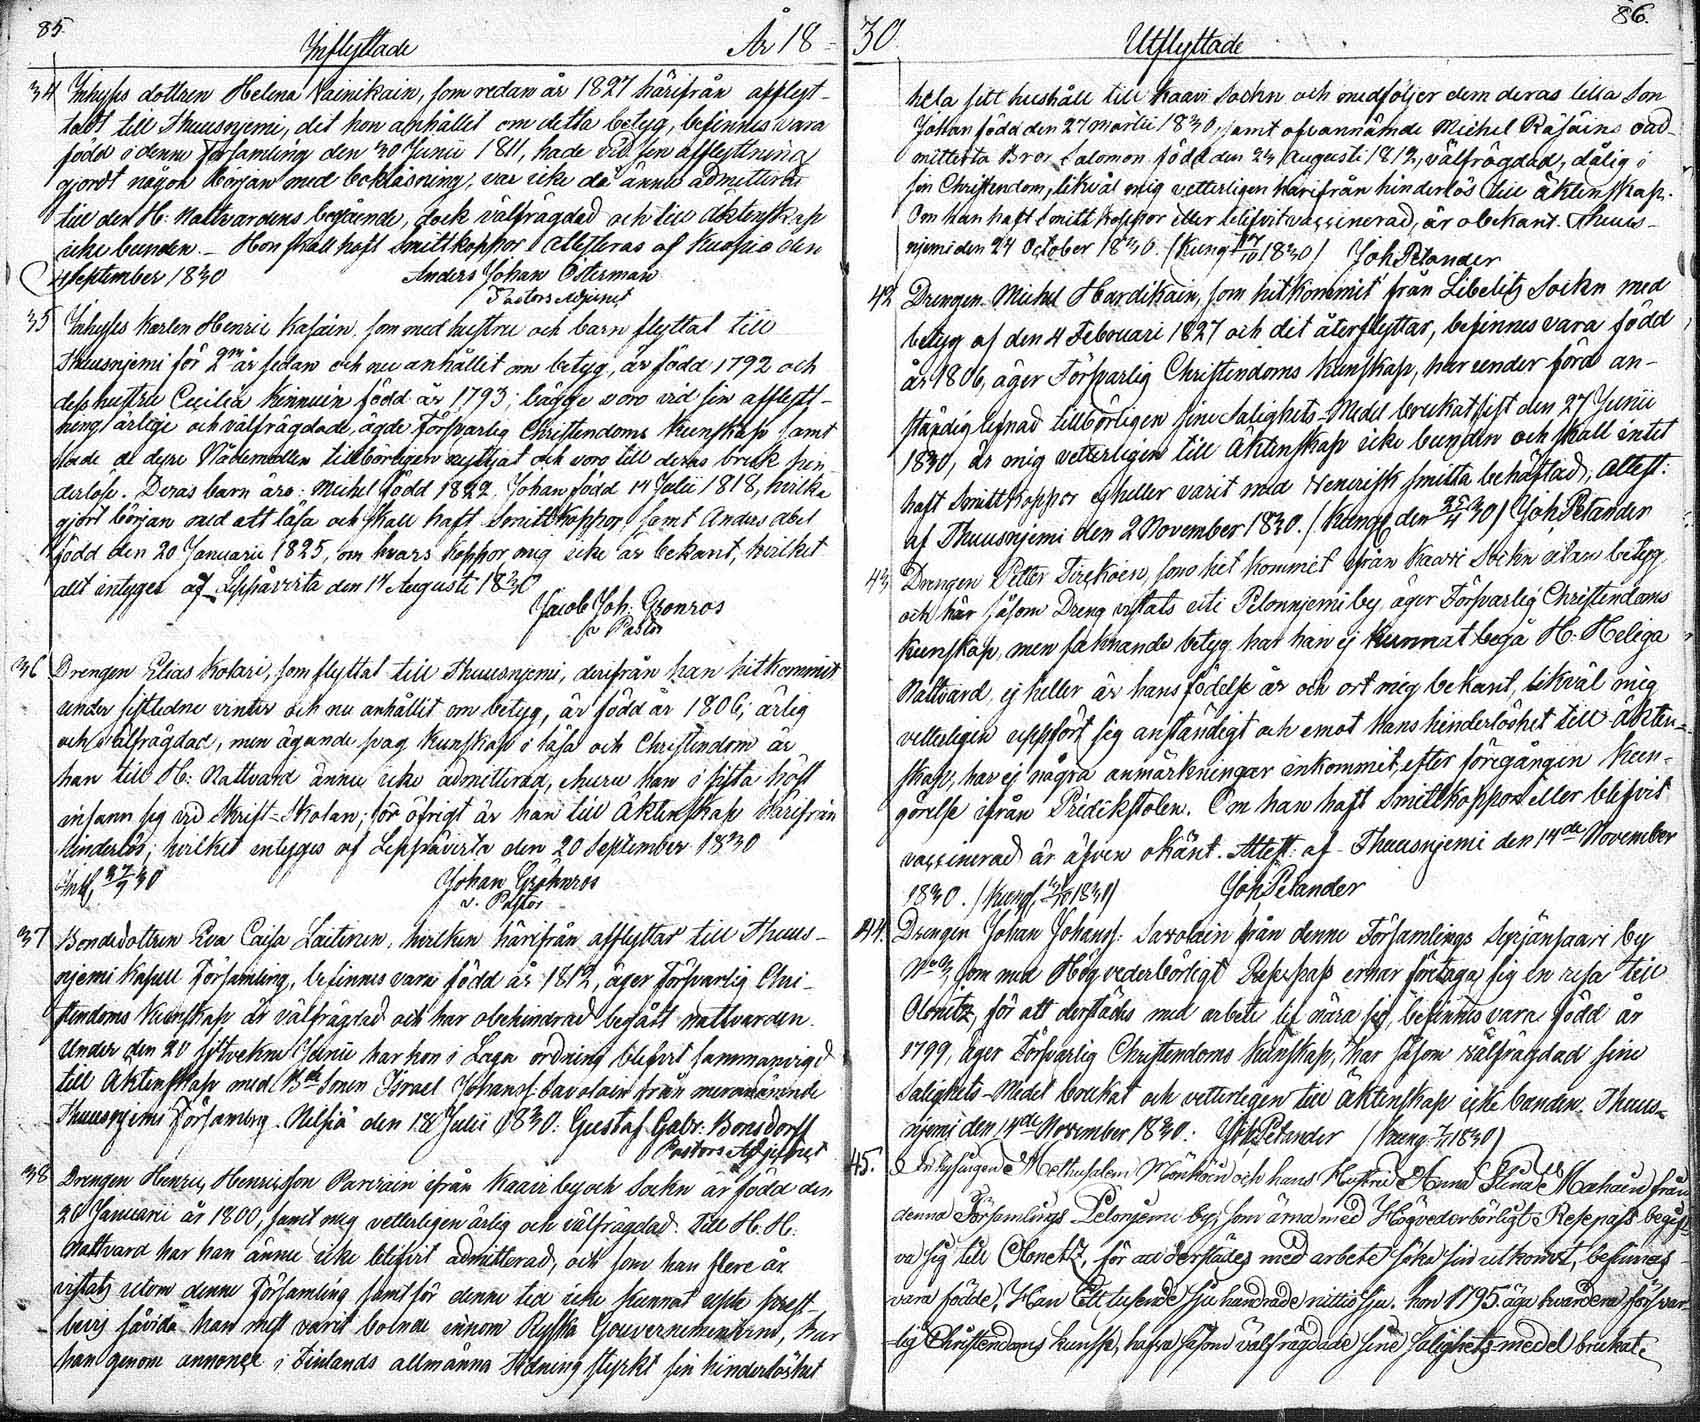 85.
Inflyttade
År 18
34 Inhyses dottren Helena Vainikain, som redan år 1827 härifrån afflyt-
tadt till Thuusnjemi, dit hon anhållet om detta betyg, befinnes vara
född i denne Församling den 30 Junii 1811, hade vid sin afflyttning
gjordt någon början med bokläsning, var icke då ännu admitterad
till den H: Nattvardens begående, dock välfrägdad och till Äktenskap
icke bunden. - Hon skall haft Smittkoppor Attesteras af Kuopio den
4 September 1830
Anders Johan Österman
Pastors Adjunct
35 Inhyses karlen Henric Kasain, som med hustru och barn flyttat till
Thuusnjemi för 2ne år sedan och nu anhållit om betyg, är född 1792 och
dess hustru Cecilia Kinnuin född år 1793; bägge voro vid sin afflytt-
ning ärlige och välfrägdade, ägde Försvarlig Christendoms Kunskap samt
hade de dyre Nådemedlen tillbörligen nyttjat och voro till deras bruk hin-
derlöse. Deras barn äro: Michel född 1822, Johan född 14 Julii 1818, hvilka
gjort början med att läsa och skall haft Smittkoppor, samt Anders Abel
född den 20 Januarii 1825, om hvars koppor mig icke är bekant, hvilket
allt intyges af Leppävirta den 17 Augusti 1830
Jacob Joh: Grönros
v Pastor
36 Drengen Elias Kolari, som flyttat till Thuusnjemi, derifrån han hitkommit
under sistledne vinter och nu anhållit om betyg, är född år 1806, ärlig
och välfrägdad, men ägande svag kunskap i läsa och Christendom är
han till H: Nattvard ännu icke admitterad, ehuru han i sista höst
infann sig vid Skrift-Skolan; för öfrigt är han till Äktenskap härifrån
hinderlös; hvilket intyges af Leppävirta den 20 September 1830
27/9 30
Johan Gröhnros
v. Pastor
37 Bondedottren Eva Caisa Laitinen, hvilken härifrån afflyttar till Thuus-
njemi Kapell Församling, befinnes vara född år 1812, äger Försvarlig Chri-
stendoms Kunskap är välfrägdad och har obehindrad begått nattvarden.
Under den 20 sistvekne Junii har hon i Laga ordning blifvit sammanvigd
till Äktenskap med Bde Sonen Israel Johanss: Savolain från merbenämnde
Thuusnjemi Församling. Nilsiä den 18 Julii 1830. Gustaf Gabr: Bonsdorff
Pastors Adjunct
38 Drengen Henric Henricsson Parviain ifrån Kaavi by och Sockn är född den
26 Januarii år 1800, samt mig vetterligen ärlig och välfrägdad. Till H: H:
Nattvard har han ännu icke blifvit admitterad, och som han flere år
vistats utom denne Församling samt för denne tid icke kunnat
bevis såvida han mest varit boende innom Ryska Gouvernementerne, har
han genom annonce i Finlands allmänna Tidning styrkt sin hinderlöshet
86.
30.
Utflyttade
hela sitt hushåll till Kaavi Sockn och medföljer dem deras lilla Son
Johan född den 27 Martii 1830, samt ofvannämde Michel Räsäins oad-
mitterta Bror Salomon född den 23 Augusti 1812, välfrägdad, dålig i
sin Christendom, likväl mig vetterligen härifrån hinderlös till äktenskap.
Om han haft Smittkoppor eller blifvit vaxinerad, är obekant. Thuus-
njemi den 24 October 1830. Joh Petander
42 Drengen Michel Hardikain, som hitkommit från Libelitz Sockn med
betyg af den 4 Februari 1827 och dit återflyttar, befinnes vara född
år 1806, äger Försvarlig Christendoms Kunskap, har under förd an-
ständig lefnad tillbörligen sine Salighets-Medel brukat sist den 27 Junii
1830, är mig vetterligen till Äktenskap icke bunden och skall intet
haft Smittkoppor ej heller varit med Venerisk smitta behäftad; Attest:
af Thuusnjemi den 2 November 1830. Joh Petander
43 Drengen Petter Tirckoin, som hit kommit från Kaavi Sockn utan betyg
och här såsom Dreng vistats uti Pelonnjemi by, äger Försvarlig Christendoms
kunskap, men saknande betyg har han ej kunnat begå H: Heliga
Nattvard, ej heller är hans födelse år och ort mig bekant, likväl mig
vetterligen uppfört sig anständigt och emot hans hinderlöshet till äkten-
skap, har ej några anmärkningar inkommit, efter föregången kun-
görelse ifrån Predikstolen. Om han haft Smittkoppor eller blifvit
vaxinerad är äfven okänt. Attest: af Thuusnjemi den 14de November
1830. Joh Petander
44. Drengen Johan Johanss: Savolain från denne Församlings Syrjänsaari by
No 3, som med Hög vederbörligt Respass ernar företaga sig en resa till
Olonetz, för att derstädes med arbete lif nära sig, befinnes vara född år
1799, äger Försvarlig Christendoms kunskap, har såsom välfrägdad sine
Salighets-Medel brukat och vetterligen till Äktenskap icke bunden. Thuus-
njemi den 14de November 1830. Joh Petander
45. Methusalem Mönköin och hans Hustru Anna Stina från
denna Församlings Pelonjemi by, som ärna med Högvederbörligt Resepass begif-
va sig till Olonetz, för att derstädes med arbete söka sin utkomst, befinnas
vara födde, Han Ett tusende sju hundrade nittio sju, hon 1795. äga hvardera försvar-
lig Christendoms kunsk, hafva såsom välfrägdade sine salighets-medel brukat